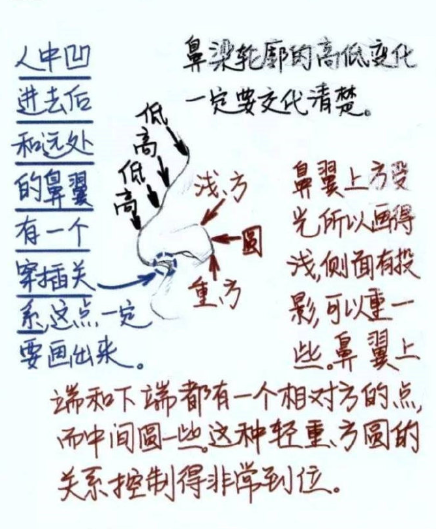 鼻梁轮廓的高低变化
一定要交代清楚。
人中凹
进去后
和远处
的鼻翼
有一个
穿插关
系,这点一定
要画出来。
低
高
低
高
浅、方
圆
重、方
鼻翼上方受
光所以画得
浅,侧面有投
影,可以重一
些。鼻翼上
端和下端都有一个相对方的点,
而中间圆一些。这种轻重、方圆的
关系控制得非常到位。